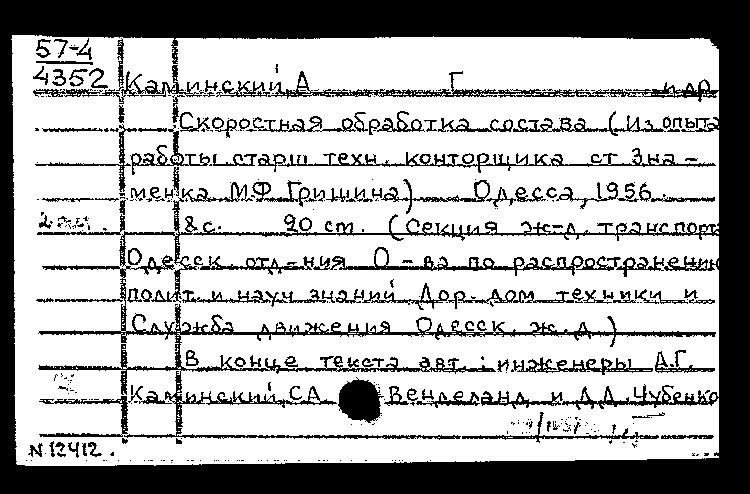 57-4
4352
Каминский, А Г и др
Скоростная обработка состава (Из опыта
работы старш техн. конторщика ст Зна-
менка М.Ф. Гришина) Одесса, 1956.
8 с. 20 см. (Секция ж-д. транспорта
Одесск. отд-ния О-ва по распространению
полит. и науч знаний Дор. дом техники и
Служба движения Одесск. ж. д)
В конце текста авт.: инженеры А.Г.
Каминский, С.А. Венделанд и Д.Д. Чубенко
N 12412.